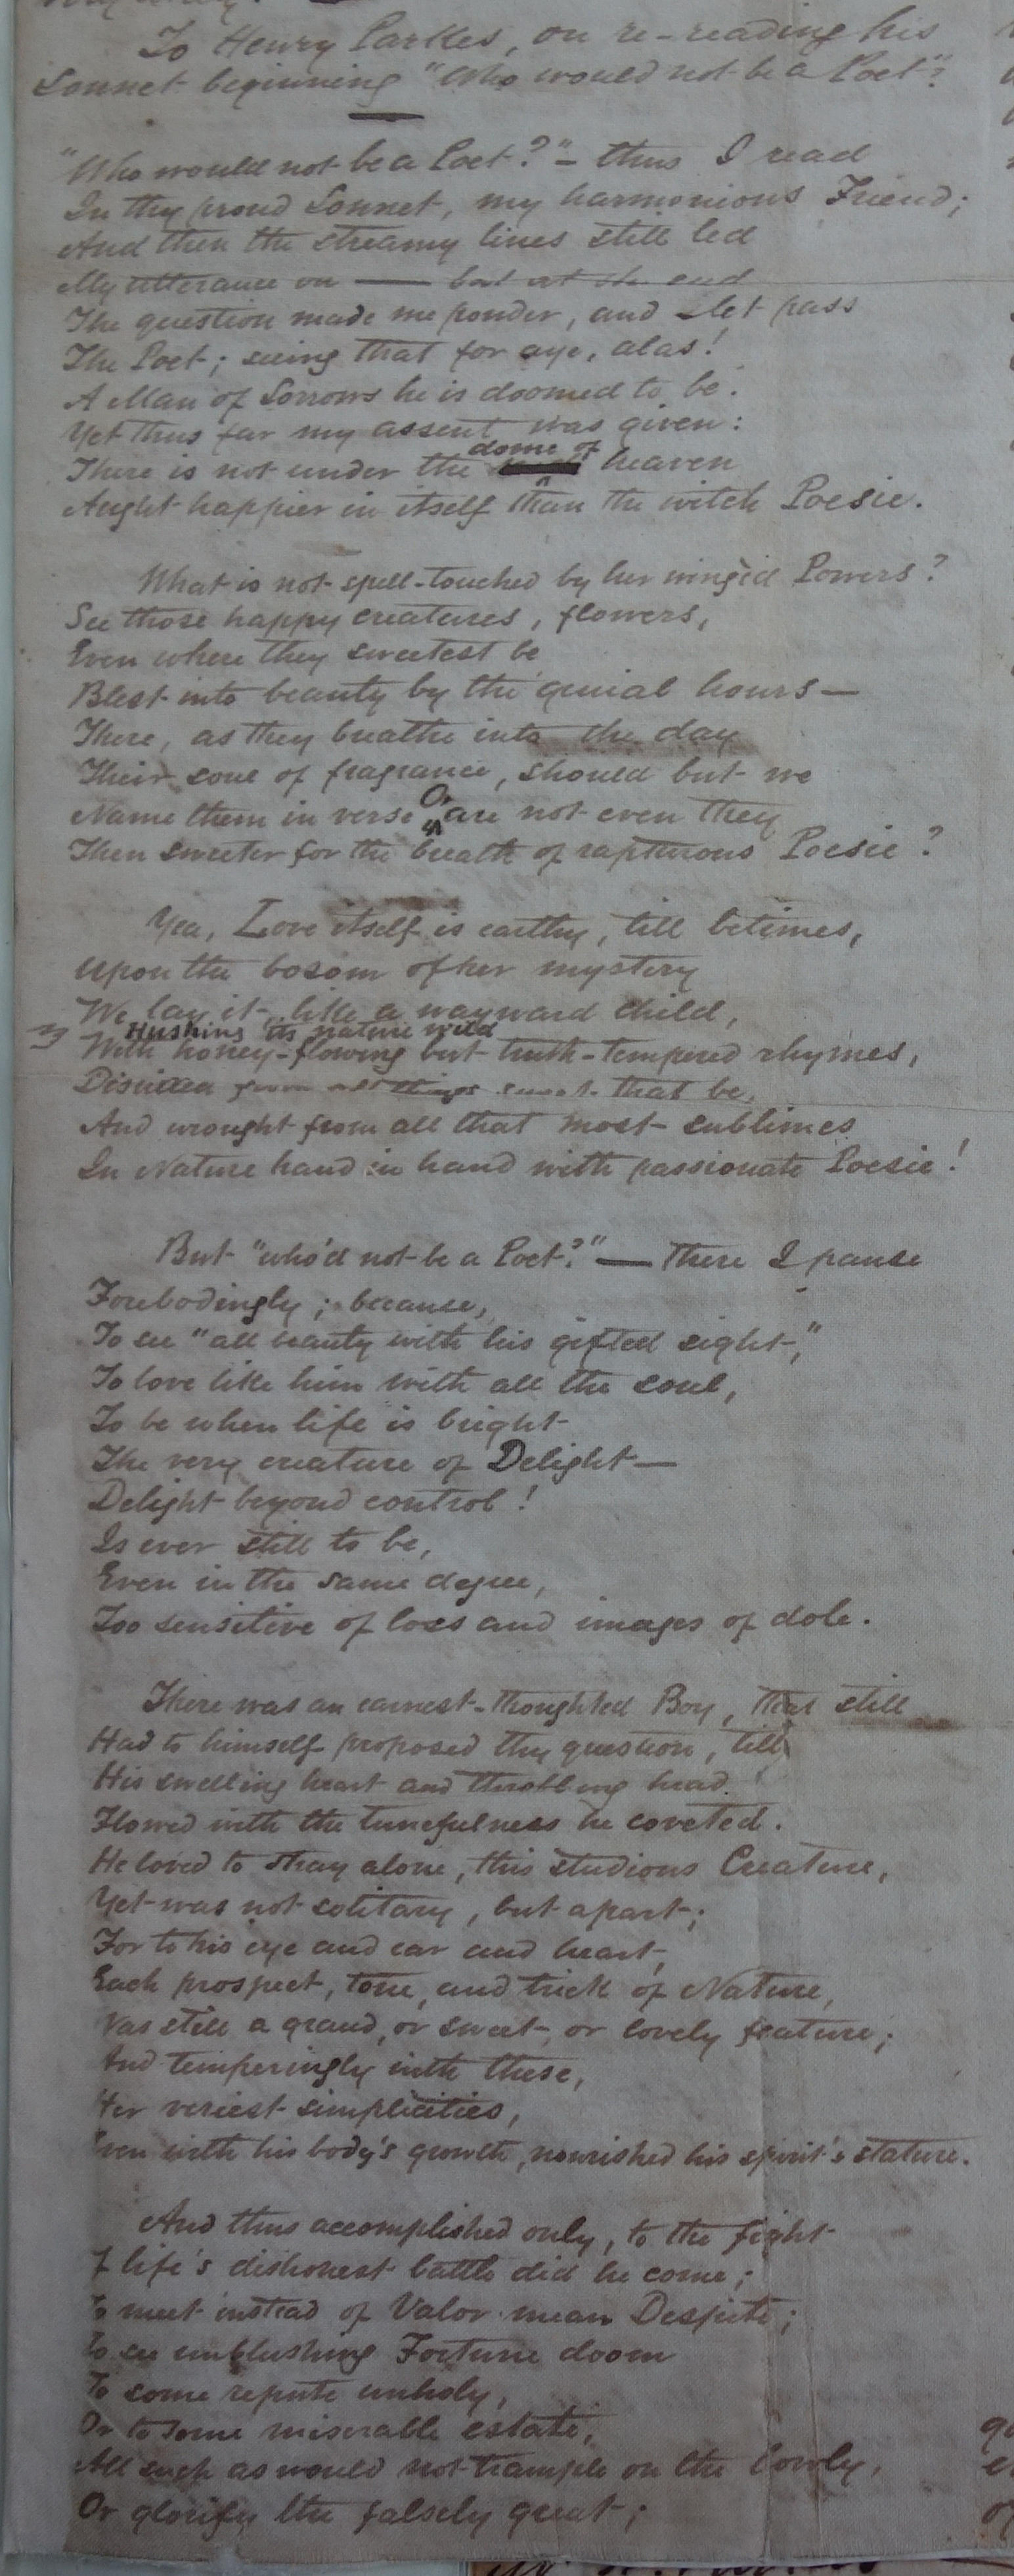 To Henry Parkes, on re-reading his
Sonnet beginning "Who would not be a Poet"?
"Who would not be a Poet?" – thus I read
In thy proud Sonnet, my harmonious Friend;
And then the streamy lines still led
My utterance on — but at the end
The question made me ponder, and let pass
The Poet; seeing that for aye, alas!
A Man of Sorrows he is doomed to be.
Yet thus far my assent was given:
dome of
There is not under the heaven
Aught happier in itself than the witch Poesie.
What is not spell-touched by her wingèd Powers?
See those happy creatures, flowers,
Even where they sweetest be
Blest into beauty by the genial hours —
There, as they breathe into the day
Their soul of fragrance, should but we
Name them in verse O, are not even they
Then sweeter for the breath of rapturous Poesie?
Yea, Love itself is earthy, till betimes,
Upon the bosom of her mystery
We lay it, like a wayward child,
Hushing its nature wild
With honey-flowing but truth-tempered rhymes,
Distilled from all things sweet that be,
And wrought from all that most sublimes
In Nature hand in hand with passionate Poesie!
But "who'd not be a Poet?" — There I pause
Forebodingly; because,
To see "all beauty with his gifted sight,"
To love like him with all the soul,
To be when life is bright
The very creature of Delight —
Delight beyond control!
Is ever still to be,
Even in the same degree,
Too sensitive of loss and images of dole.
There was an earnest-thoughted Boy, that still
Had to himself proposed thy question, till
His swelling heart and throbbing head
Flowed with the tunefulness he coveted.
He loved to stray alone, this studious Creature,
Yet was not solitary, but apart;
For to his eye and ear and heart,
Each prospect, tone, and trick of Nature,
Was still a grand, or sweet, or lovely feature;
And temperingly with these,
Her veriest simplicities,
Even with his body's growth, nourished his spirit's stature.
And thus accomplished only, to the fight
Of life's dishonest battle did he come;
To meet instead of Valor mean Despite;
To see unblushing Fortune doom
To some repute unholy,
Or to some miserable estate,
All such as would not trample on the lowly,
Or glorify the falsely great;